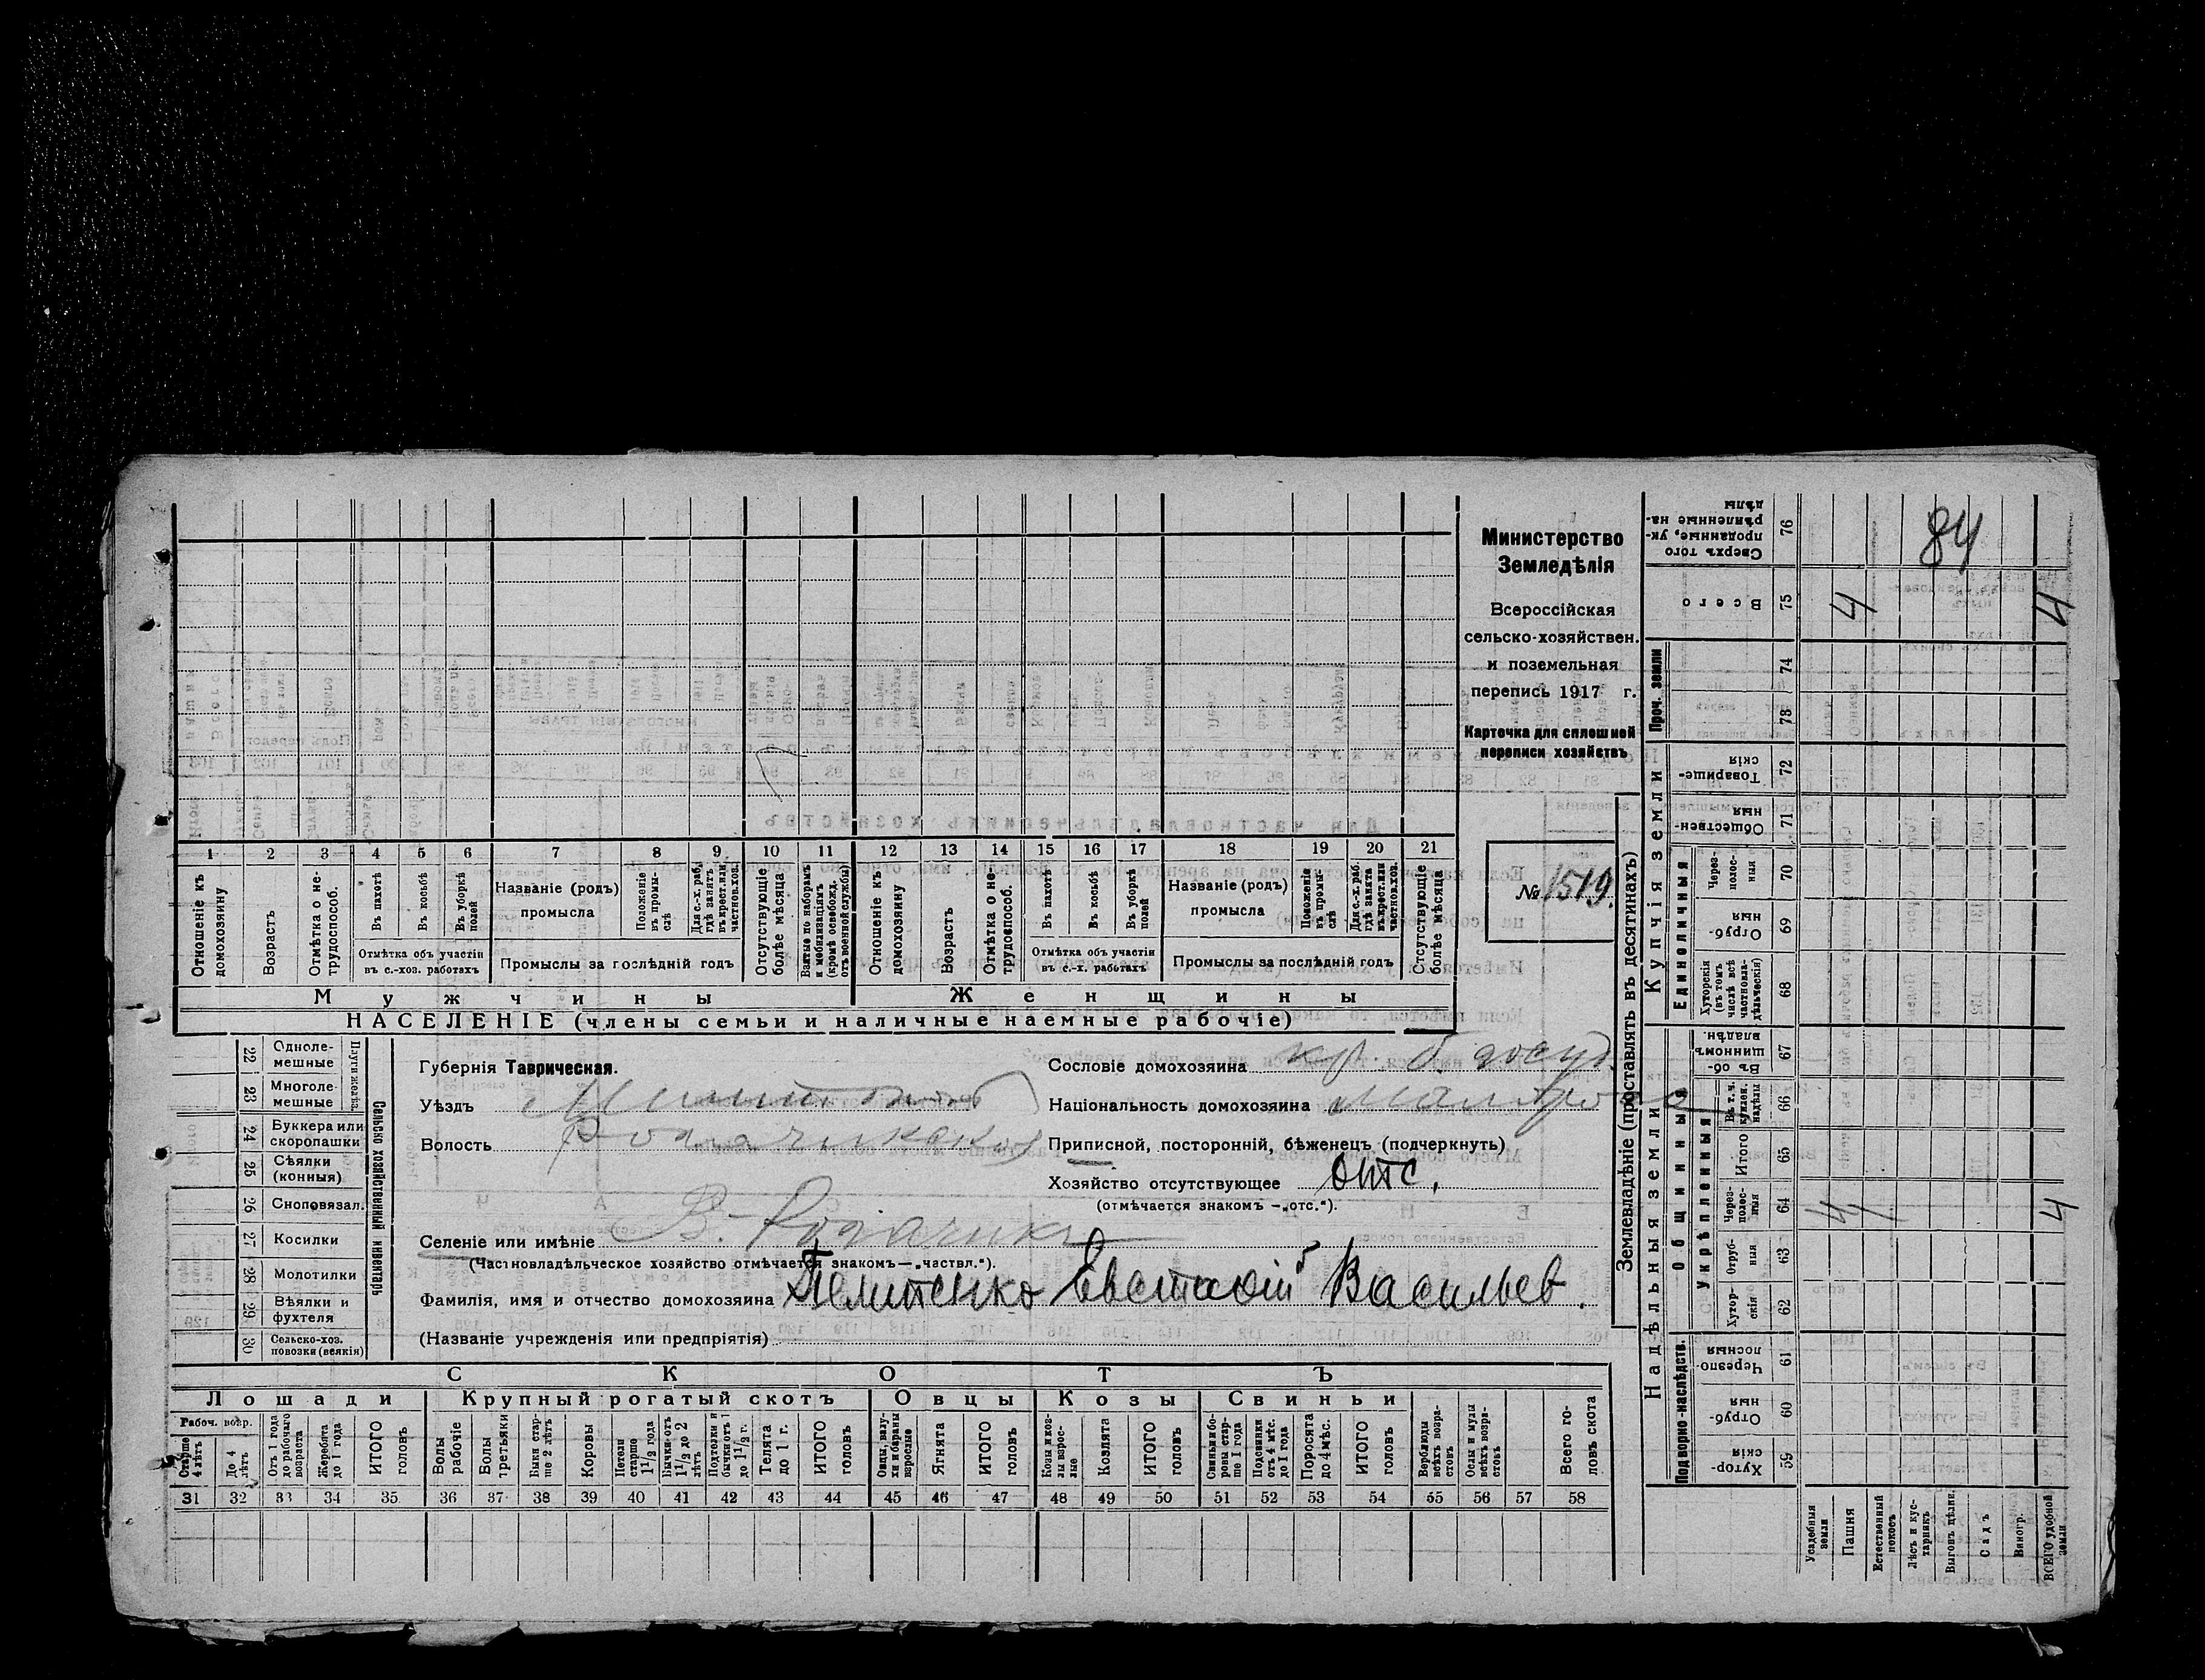 Министерство
Земледѣлія
Всероссійская
сельско-хозяйствен.
и поземельная
перепись 1917 г.
Карточка для сплошной
переписи хозяйствъ
№ 1519.
84
1 2 3 4 5 6 7 8 9 10 11 12 13 14 15 16 17 18 19 20 21
Отношеніе къ домохозяину
Возрастъ
Отмѣтка о не-трудоспособ.
Въ пахотѣ
Въ косьбѣ
Въ уборкѣ полей
Отмѣтка объ участіи
въ с.-хоз. работахъ
Названіе (родъ)
промысла
Положеніе въ промы-слѣ
Для с.-х. раб. гдѣ занятъ въ крест. или частнов. хоз.
Промыслы за послѣдній годъ
Отсутствующіе болѣе мѣсяца
Взятые по наборамъ и мобилизаціямъ (кромѣ освобожд. отъ военной службы)
Отношеніе къ домохозяину
Возрастъ
Отмѣтка о не-трудоспособ.
Въ пахотѣ
Въ косьбѣ
Въ уборкѣ полей
Отмѣтка объ участіи
въ с.-х. работахъ
Названіе (родъ)
промысла
Положеніе въ промы-слѣ
Для с.-х. раб. гдѣ занята въ крест. или частнов. хоз.
Промыслы за послѣдній годъ
Отсутствующіе болѣе мѣсяца
Мужчины
Женщины
НАСЕЛЕНІЕ (члены семьи и наличные наемные рабочіе)
Сельско хозяйственный инвентарь
22 Одноле-мешные
23 Многоле-мешные
24 Буккера или скоропашки
25 Сѣялки (конныя)
26 Сноповязал.
27 Косилки
28 Молотилки
29 Вѣялки и фухтеля
30 Сельско-хоз. повозки (всякія)
Губернія Таврическая.
Уѣздъ
Волость
Селеніе или имѣніе В.-Рогачикъ
(Частновладѣльческое хозяйство отмѣчается знакомъ—„частвл.“).
Фамилія, имя и отчество домохозяина Пелипенко Евстафій Васильев.
(Названіе учрежденія или предпріятія)
Сословіе домохозяина кр. б. госуд.
Національность домохозяина Малорос
Приписной, посторонній, бѣженецъ (подчеркнуть)
Хозяйство отсутствующее отс.
(отмѣчается знакомъ —„отс.“).
СКОТЪ
Лошади
Крупный рогатый скотъ
Овцы
Козы
Свиньи
Рабоч. возр.
Старше 4 лѣтъ
До 4 лѣтъ
Отъ 1 года до рабочаго возраста
Жеребята до 1 года
ИТОГО головъ
Волы рабочіе
Волы третьяки
Быки стар-ше 2 лѣтъ
Коровы
Нетели старше 1 1/2 года
Бычки отъ 1 1/2 до 2 лѣтъ
Подтелки и бычки отъ 1 до 1 1/2 г.
Телята до 1 г.
ИТОГО головъ
Овцы, валу-хи и бараны взрослые
Ягнята
ИТОГО головъ
Козы и коз-лы взрос-лые
Козлята
ИТОГО головъ
Свиньи и бо-ровы стар-ше 1 года
Подсвинки отъ 4 мѣс. до 1 года
Поросята до 4 мѣс.
ИТОГО головъ
Верблюды всѣхъ возра-стовъ
Ослы и мулы всѣхъ возра-стовъ
Всего го-ловъ скота
31 32 33 34 35 36 37 38 39 40 41 42 43 44 45 46 47 48 49 50 51 52 53 54 55 56 57 58
Землевладѣніе (проставлять въ десятинахъ)
Купчія земли
Надѣльныя земли
Проч. земли
Единоличныя
Общинныя
Укрѣпленныя
Подворно-наслѣдств.
Сверхъ того проданные, ук-рѣпленные на-дѣлы 76
Всего 75 4 4
74
73
Товарище-скія 72
Обществен-ныя 71
Через-полос-ныя 70
Отруб-ныя 69
Хуторскія (въ томъ числѣ всѣ частновла-дѣльческія) 68
Въ об-щинномъ владѣн. 67
Въ т. ч. куплен. надѣлы 66
Итого 65
Через-полос-ныя 64 4 4
Отруб-ныя 63
Хутор-скія 62
Черезпо-лосныя 61
Отруб-ныя 60
Хутор-скія 59
Усадебныя земли
Пашня
Естественный покосъ
Лѣсъ и кус-тарникъ
Выгонъ цѣлин.
Садъ
Виногр.
ВСЕГО удобной земли